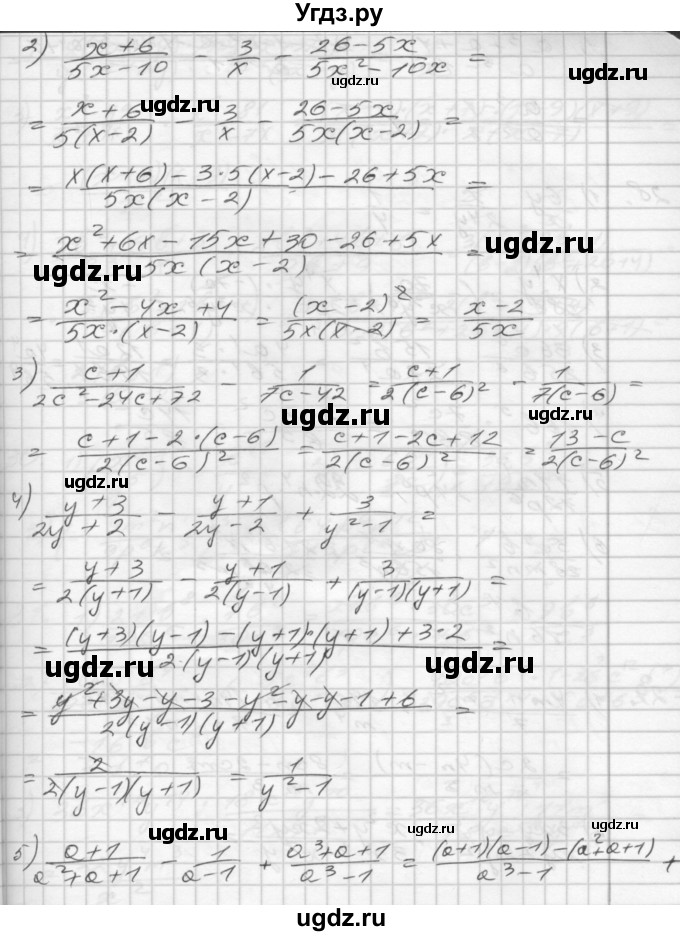 Угдз.ру
2) (x+6)/(5x-10) - 3/x - (26-5x)/(5x²-10x) =
ugdz.ru
ugdz.ru
ugdz.ru
= (x+6)/(5(x-2)) - 3/x - (26-5x)/(5x(x-2)) =
ugdz.ru
= (x(x+6)-3·5(x-2)-26+5x)/(5x(x-2)) =
= (x²+6x-15x+30-26+5x)/(5x(x-2)) =
ugdz.ru
ugdz.ru
ugdz.ru
= (x²-4x+4)/(5x·(x-2)) = (x-2)²/(5x(x-2)) = (x-2)/(5x)
3) (c+1)/(2c²-24c+72) - 1/(7c-42) = (c+1)/(2(c-6)²) - 1/(7(c-6)) =
ugdz.ru
ugdz.ru
= (c+1-2·(c-6))/(2(c-6)²) = (c+1-2c+12)/(2(c-6)²) = (13-c)/(2(c-6)²)
ugdz.ru
4) (y+3)/(2y+2) - (y+1)/(2y-2) + 3/(y²-1) =
= (y+3)/(2(y+1)) - (y+1)/(2(y-1)) + 3/((y-1)(y+1)) =
= ((y+3)(y-1)-(y+1)·(y+1)+3·2)/(2·(y-1)(y+1)) =
ugdz.ru
ugdz.ru
ugdz.ru
= (y²+3y-y-3-y²-y-y-1+6)/(2(y-1)(y+1)) =
= 2/(2(y-1)(y+1)) = 1/(y²-1)
ugdz.ru
ugdz.ru
ugdz.ru
5) (a+1)/(a²+a+1) - 1/(a-1) + (a³+a+1)/(a³-1) = ((a+1)(a-1)-(a²+a+1))/(a³-1) +
ugdz.ru